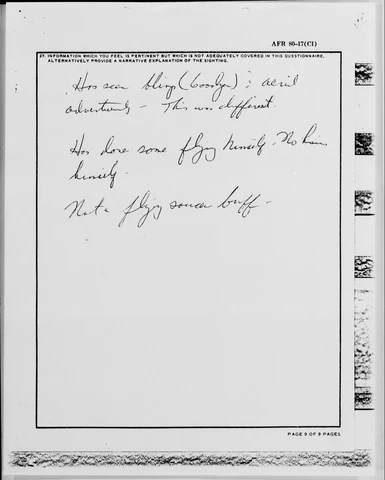 AFR 80-17(C1)
27. INFORMATION WHICH YOU FEEL IS PERTINENT BUT WHICH IS NOT ADEQUATELY COVERED IN THIS QUESTIONNAIRE. ALTERNATIVELY PROVIDE A NARRATIVE EXPLANATION OF THE SIGHTING.
Has seen blimp (Goodyear) & aerial
advertising - This was different.
Has done some flying himself. No
himself.
Not a flying saucer buff -
PAGE 9 OF 9 PAGES